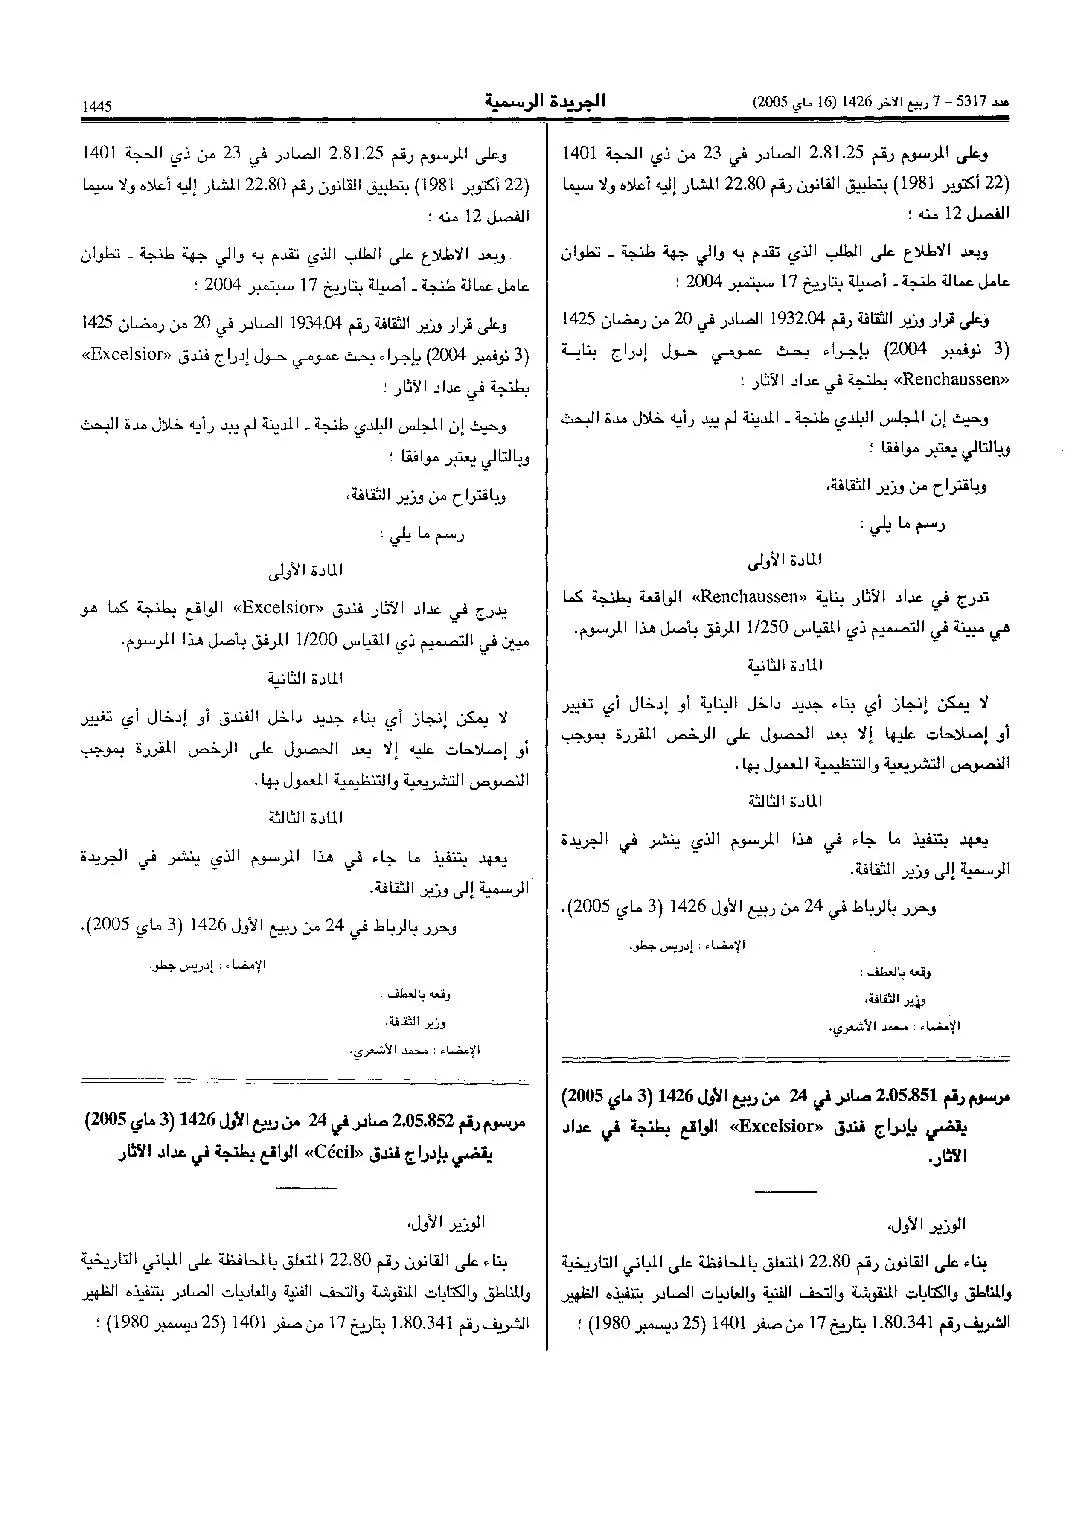 عدد 5317 – 7 ربيع الآخر 1426 (16 ماي 2005)
الجريدة الرسمية
1445
وعلى المرسوم رقم 2.81.25 الصادر في 23 من ذي الحجة 1401
(22 أكتوبر 1981) بتطبيق القانون رقم 22.80 المشار إليه أعلاه ولا سيما
الفصل 12 منه ؛
وبعد الاطلاع على الطلب الذي تقدم به والي جهة طنجة ـ تطوان
عامل عمالة طنجة ـ أصيلة بتاريخ 17 سبتمبر 2004 ؛
وعلى قرار وزير الثقافة رقم 1932.04 الصادر في 20 من رمضان 1425
(3 نوفمبر 2004) بإجراء بحث عمومي حول إدراج بناية
«Renchaussen» بطنجة في عداد الآثار ؛
وحيث إن المجلس البلدي طنجة ـ المدينة لم يبد رأيه خلال مدة البحث
وبالتالي يعتبر موافقا ؛
وباقتراح من وزير الثقافة،
رسم ما يلي :
المادة الأولى
تدرج في عداد الآثار بناية «Renchaussen» الواقعة بطنجة كما
هي مبينة في التصميم ذي المقياس 1/250 المرفق بأصل هذا المرسوم.
المادة الثانية
لا يمكن إنجاز أي بناء جديد داخل البناية أو إدخال أي تغيير
أو إصلاحات عليها إلا بعد الحصول على الرخص المقررة بموجب
النصوص التشريعية والتنظيمية المعمول بها.
المادة الثالثة
يعهد بتنفيذ ما جاء في هذا المرسوم الذي ينشر في الجريدة
الرسمية إلى وزير الثقافة.
وحرر بالرباط في 24 من ربيع الأول 1426 (3 ماي 2005).
الإمضاء : إدريس جطو.
وقعه بالعطف :
وزير الثقافة،
الإمضاء : محمد الأشعري.
مرسوم رقم 2.05.851 صادر في 24 من ربيع الأول 1426 (3 ماي 2005)
يقضي بإدراج فندق «Excelsior» الواقع بطنجة في عداد
الآثار.
الوزير الأول،
بناء على القانون رقم 22.80 المتعلق بالمحافظة على المباني التاريخية
والمناطق والكتابات المنقوشة والتحف الفنية والعاديات الصادر بتنفيذه الظهير
الشريف رقم 1.80.341 بتاريخ 17 من صفر 1401 (25 ديسمبر 1980) ؛
وعلى المرسوم رقم 2.81.25 الصادر في 23 من ذي الحجة 1401
(22 أكتوبر 1981) بتطبيق القانون رقم 22.80 المشار إليه أعلاه ولا سيما
الفصل 12 منه ؛
وبعد الاطلاع على الطلب الذي تقدم به والي جهة طنجة ـ تطوان
عامل عمالة طنجة ـ أصيلة بتاريخ 17 سبتمبر 2004 ؛
وعلى قرار وزير الثقافة رقم 1934.04 الصادر في 20 من رمضان 1425
(3 نوفمبر 2004) بإجراء بحث عمومي حول إدراج فندق «Excelsior»
بطنجة في عداد الآثار ؛
وحيث إن المجلس البلدي طنجة ـ المدينة لم يبد رأيه خلال مدة البحث
وبالتالي يعتبر موافقا ؛
وباقتراح من وزير الثقافة،
رسم ما يلي :
المادة الأولى
يدرج في عداد الآثار فندق «Excelsior» الواقع بطنجة كما هو
مبين في التصميم ذي المقياس 1/200 المرفق بأصل هذا المرسوم.
المادة الثانية
لا يمكن إنجاز أي بناء جديد داخل الفندق أو إدخال أي تغيير
أو إصلاحات عليه إلا بعد الحصول على الرخص المقررة بموجب
النصوص التشريعية والتنظيمية المعمول بها.
المادة الثالثة
يعهد بتنفيذ ما جاء في هذا المرسوم الذي ينشر في الجريدة
الرسمية إلى وزير الثقافة.
وحرر بالرباط في 24 من ربيع الأول 1426 (3 ماي 2005).
الإمضاء : إدريس جطو.
وقعه بالعطف :
وزير الثقافة،
الإمضاء : محمد الأشعري.
مرسوم رقم 2.05.852 صادر في 24 من ربيع الأول 1426 (3 ماي 2005)
يقضي بإدراج فندق «Cécil» الواقع بطنجة في عداد الآثار
الوزير الأول،
بناء على القانون رقم 22.80 المتعلق بالمحافظة على المباني التاريخية
والمناطق والكتابات المنقوشة والتحف الفنية والعاديات الصادر بتنفيذه الظهير
الشريف رقم 1.80.341 بتاريخ 17 من صفر 1401 (25 ديسمبر 1980) ؛